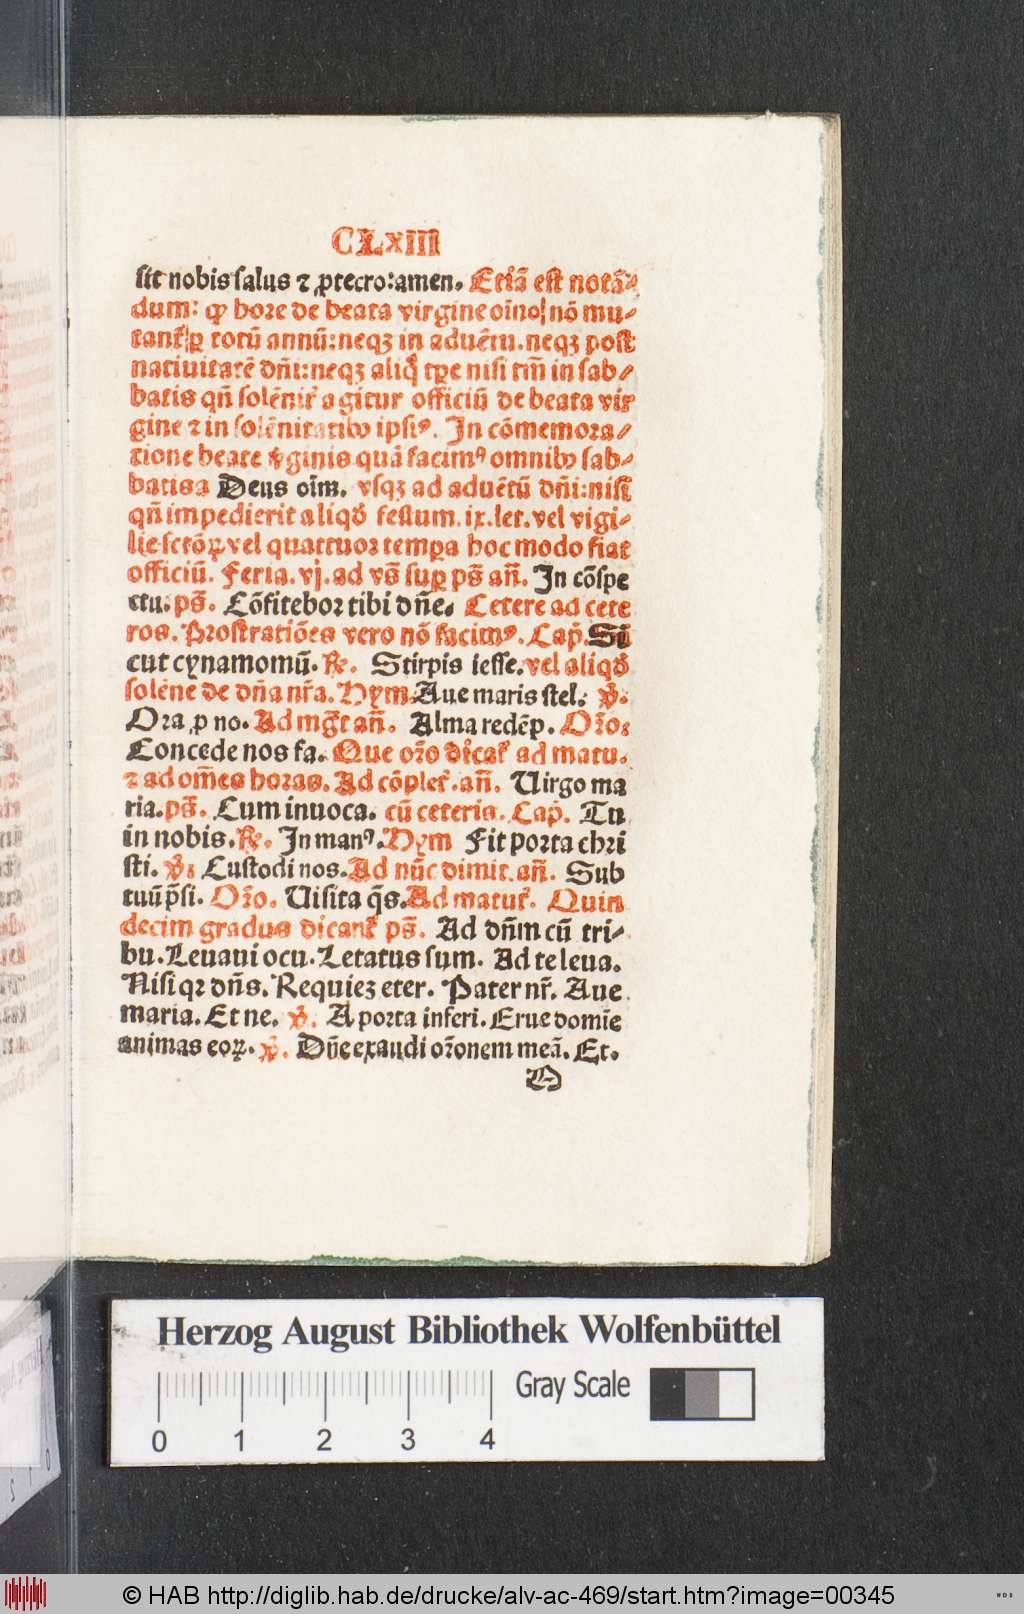 CLXIII
sit nobis salus ⁊ ꝓtectio: amen. Etiā est notā-
dum: ꝙ hore de beata virgine oīno nō mu-
tant᷑ ꝑ totū annū: neqꝫ in aduētu. neqꝫ post
natiuitatē dn̄i: neqꝫ aliq̊ tꝑe nisi tm̄ in sab-
batis qn̄ solēnit᷑ agitur officiū de beata vir
gine ⁊ in solēnitatibꝰ ipsiꝰ. In cōmemora-
tione beate v̓ginis quā facimꝰ omnibꝰ sab-
batis a Deus oīm. vsqꝫ ad aduētū dn̄i: nisi
qn̄ impedierit aliqd̓ festum. ix. let. vel vigi-
lie sctōꝝ vel quattuor tempꝑa hoc modo fiat
officiū. Feria. vj. ad vs̄ suꝑ ps̄ an̄. In cōspe
ctu. ps̄. Cōfitebor tibi dn̄e. Cetere ad cete
ros. Prostratiōes vero nō facimꝰ. Cap̄. Si
cut cynamomū. ℟. Stirpis iesse. vel aliqd̓
solēne de dn̄a nr̄a. Hym. Aue maris stel. ℣.
Ora ꝓ no. Ad mg̅t an̄. Alma redēp. Or̄o:
Concede nos fa. Que or̄o dicat᷑ ad matu.
⁊ ad om̄es horas. Ad cōplet᷑. an̄. Uirgo ma
ria. ps̄. Cum inuoca. cū ceteris. Cap̄. Tu
in nobis. ℟. In manꝰ. Hym Fit porta chri
sti. ℣: Custodi nos. Ad nūc dimit. an̄. Sub
tuū p̄si. Or̄o. Uisita q̄s. Ad matut᷑. Quin
decim gradus dicant᷑ ps̄. Ad dn̄m cū tri-
bu. Leuaui ocu. Letatus sum. Ad te leua.
Nisi qꝛ dn̄s. Requieꝫ eter. Pater nr̄. Aue
maria. Et ne. ℣. A porta inferi. Erue domīe
animas eoꝝ. ℣. Dn̄e exaudi or̄onem meā. Et.
O
Herzog August Bibliothek Wolfenbüttel
0 1 2 3 4 Gray Scale
© HAB http://diglib.hab.de/drucke/alv-ac-469/start.htm?image=00345